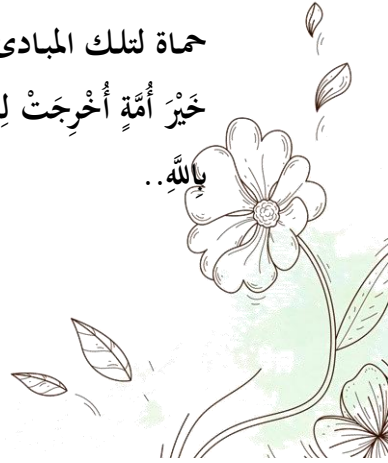 حماة لتلك المبادئ
خَيْرَ أُمَّةٍ أُخْرِجَتْ
بِاللَّهِ..